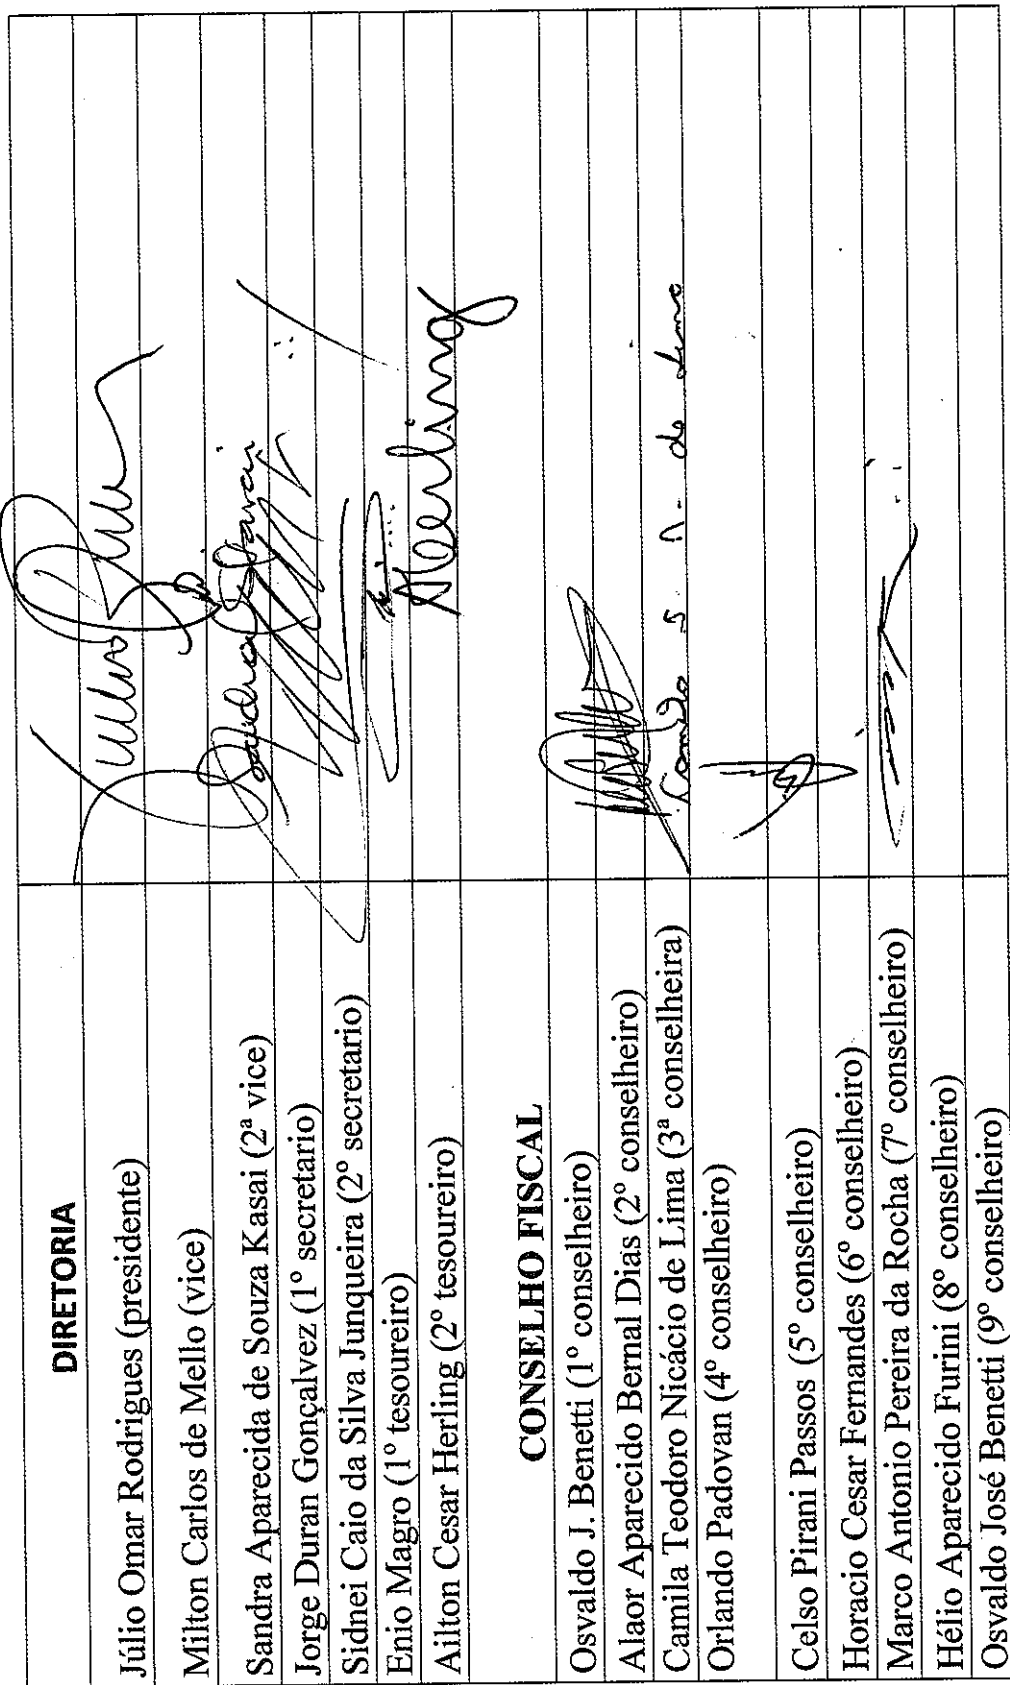 DIRETORIA
Júlio Omar Rodrigues (presidente)
Milton Carlos de Mello (vice)
Sandra Aparecida de Souza Kasai (2ª vice)
Jorge Duran Gonçalvez (1º secretario)
Sidnei Caio da Silva Junqueira (2º secretario)
Enio Magro (1º tesoureiro)
Ailton Cesar Herling (2º tesoureiro)
AHerling
CONSELHO FISCAL
Osvaldo J. Benetti (1º conselheiro)
Alaor Aparecido Bernal Dias (2º conselheiro)
Camila Teodoro Nicácio de Lima (3ª conselheira)
Orlando Padovan (4º conselheiro)
Celso Pirani Passos (5º conselheiro)
Horacio Cesar Fernandes (6º conselheiro)
Marco Antonio Pereira da Rocha (7º conselheiro)
Hélio Aparecido Furini (8º conselheiro)
Osvaldo José Benetti (9º conselheiro)